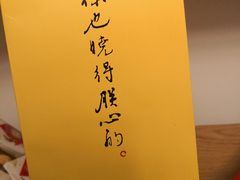 你也曉得朕心的